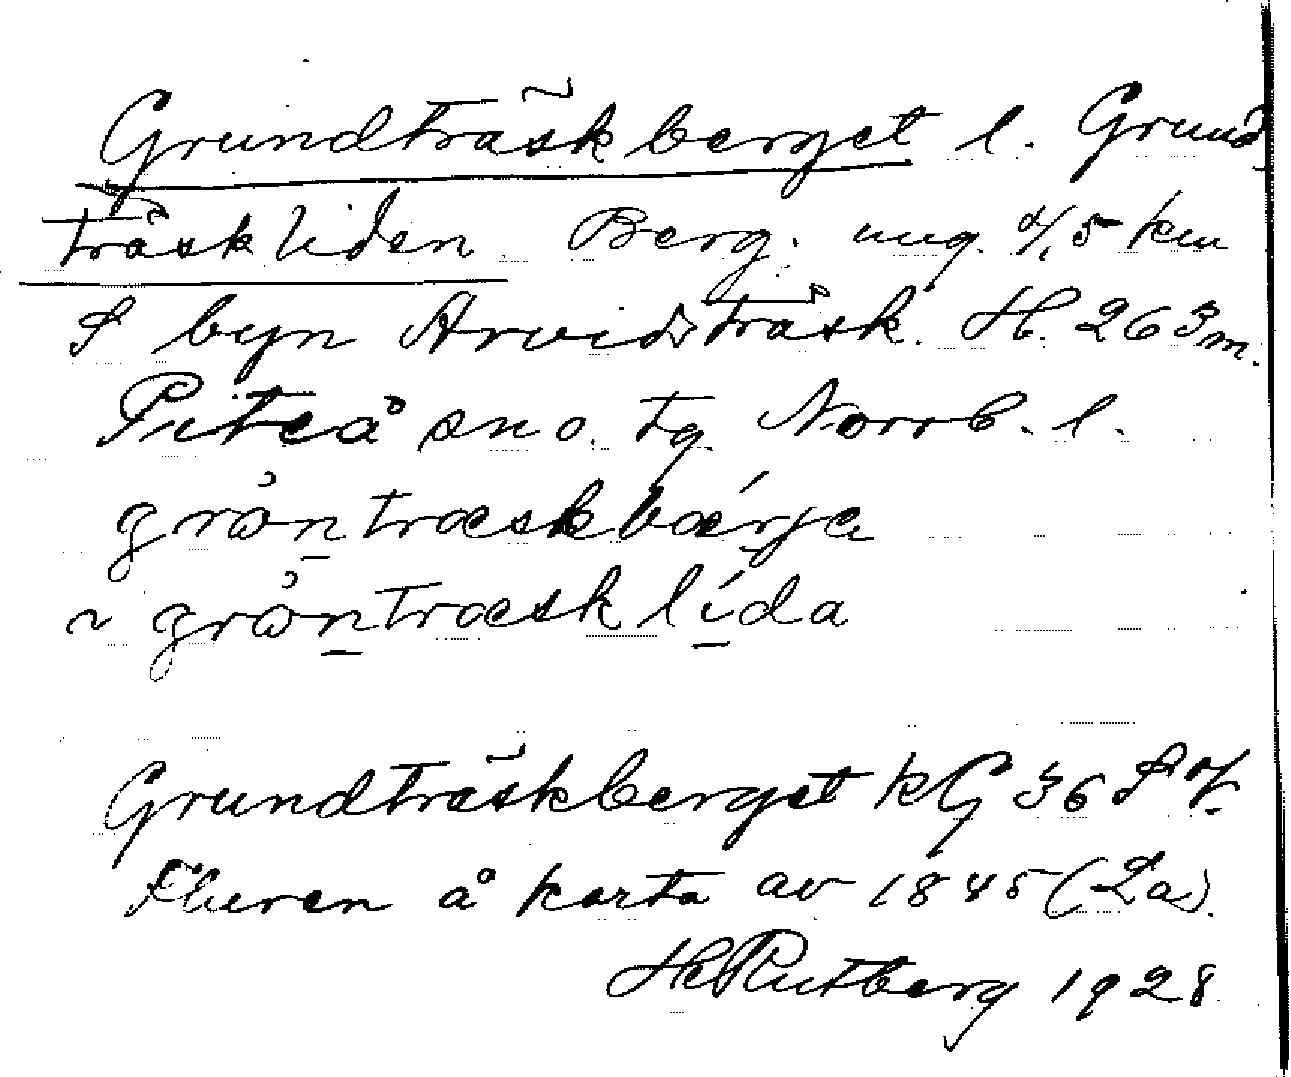 Grundträskberget l. Grund-
träskliden Berg. ung. 0,5 km
S byn Arvidsträsk. H. 263 m.
Piteå sno. tg. Norrb. l.
gröntræskbærja
~ gröntræsklida
Grundträskberget kG 36 S o,
å karta av 1845 (La).
H Rutberg 1928